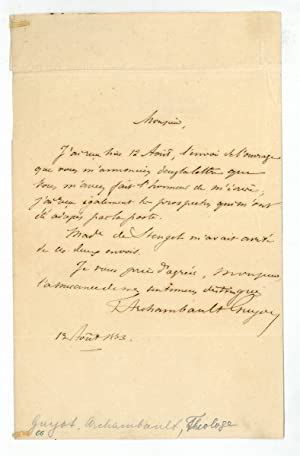 Monsieur,
J'ai reçu hier 12 Août, l'envoi de l'ouvrage
que vous m'annonciez dans la lettre que
vous m'avez fait l'honneur de m'écrire,
j'ai reçu également le prospectus qui m'ont
été adressés par la poste.
Made de Stengel m'avait avisé
de ces deux envois.
Je vous prie d'agréer, Monsieur,
l'assurance de mes sentiments distingués
Archambault Guyot
Août
Guyot, Archambault, Théologe